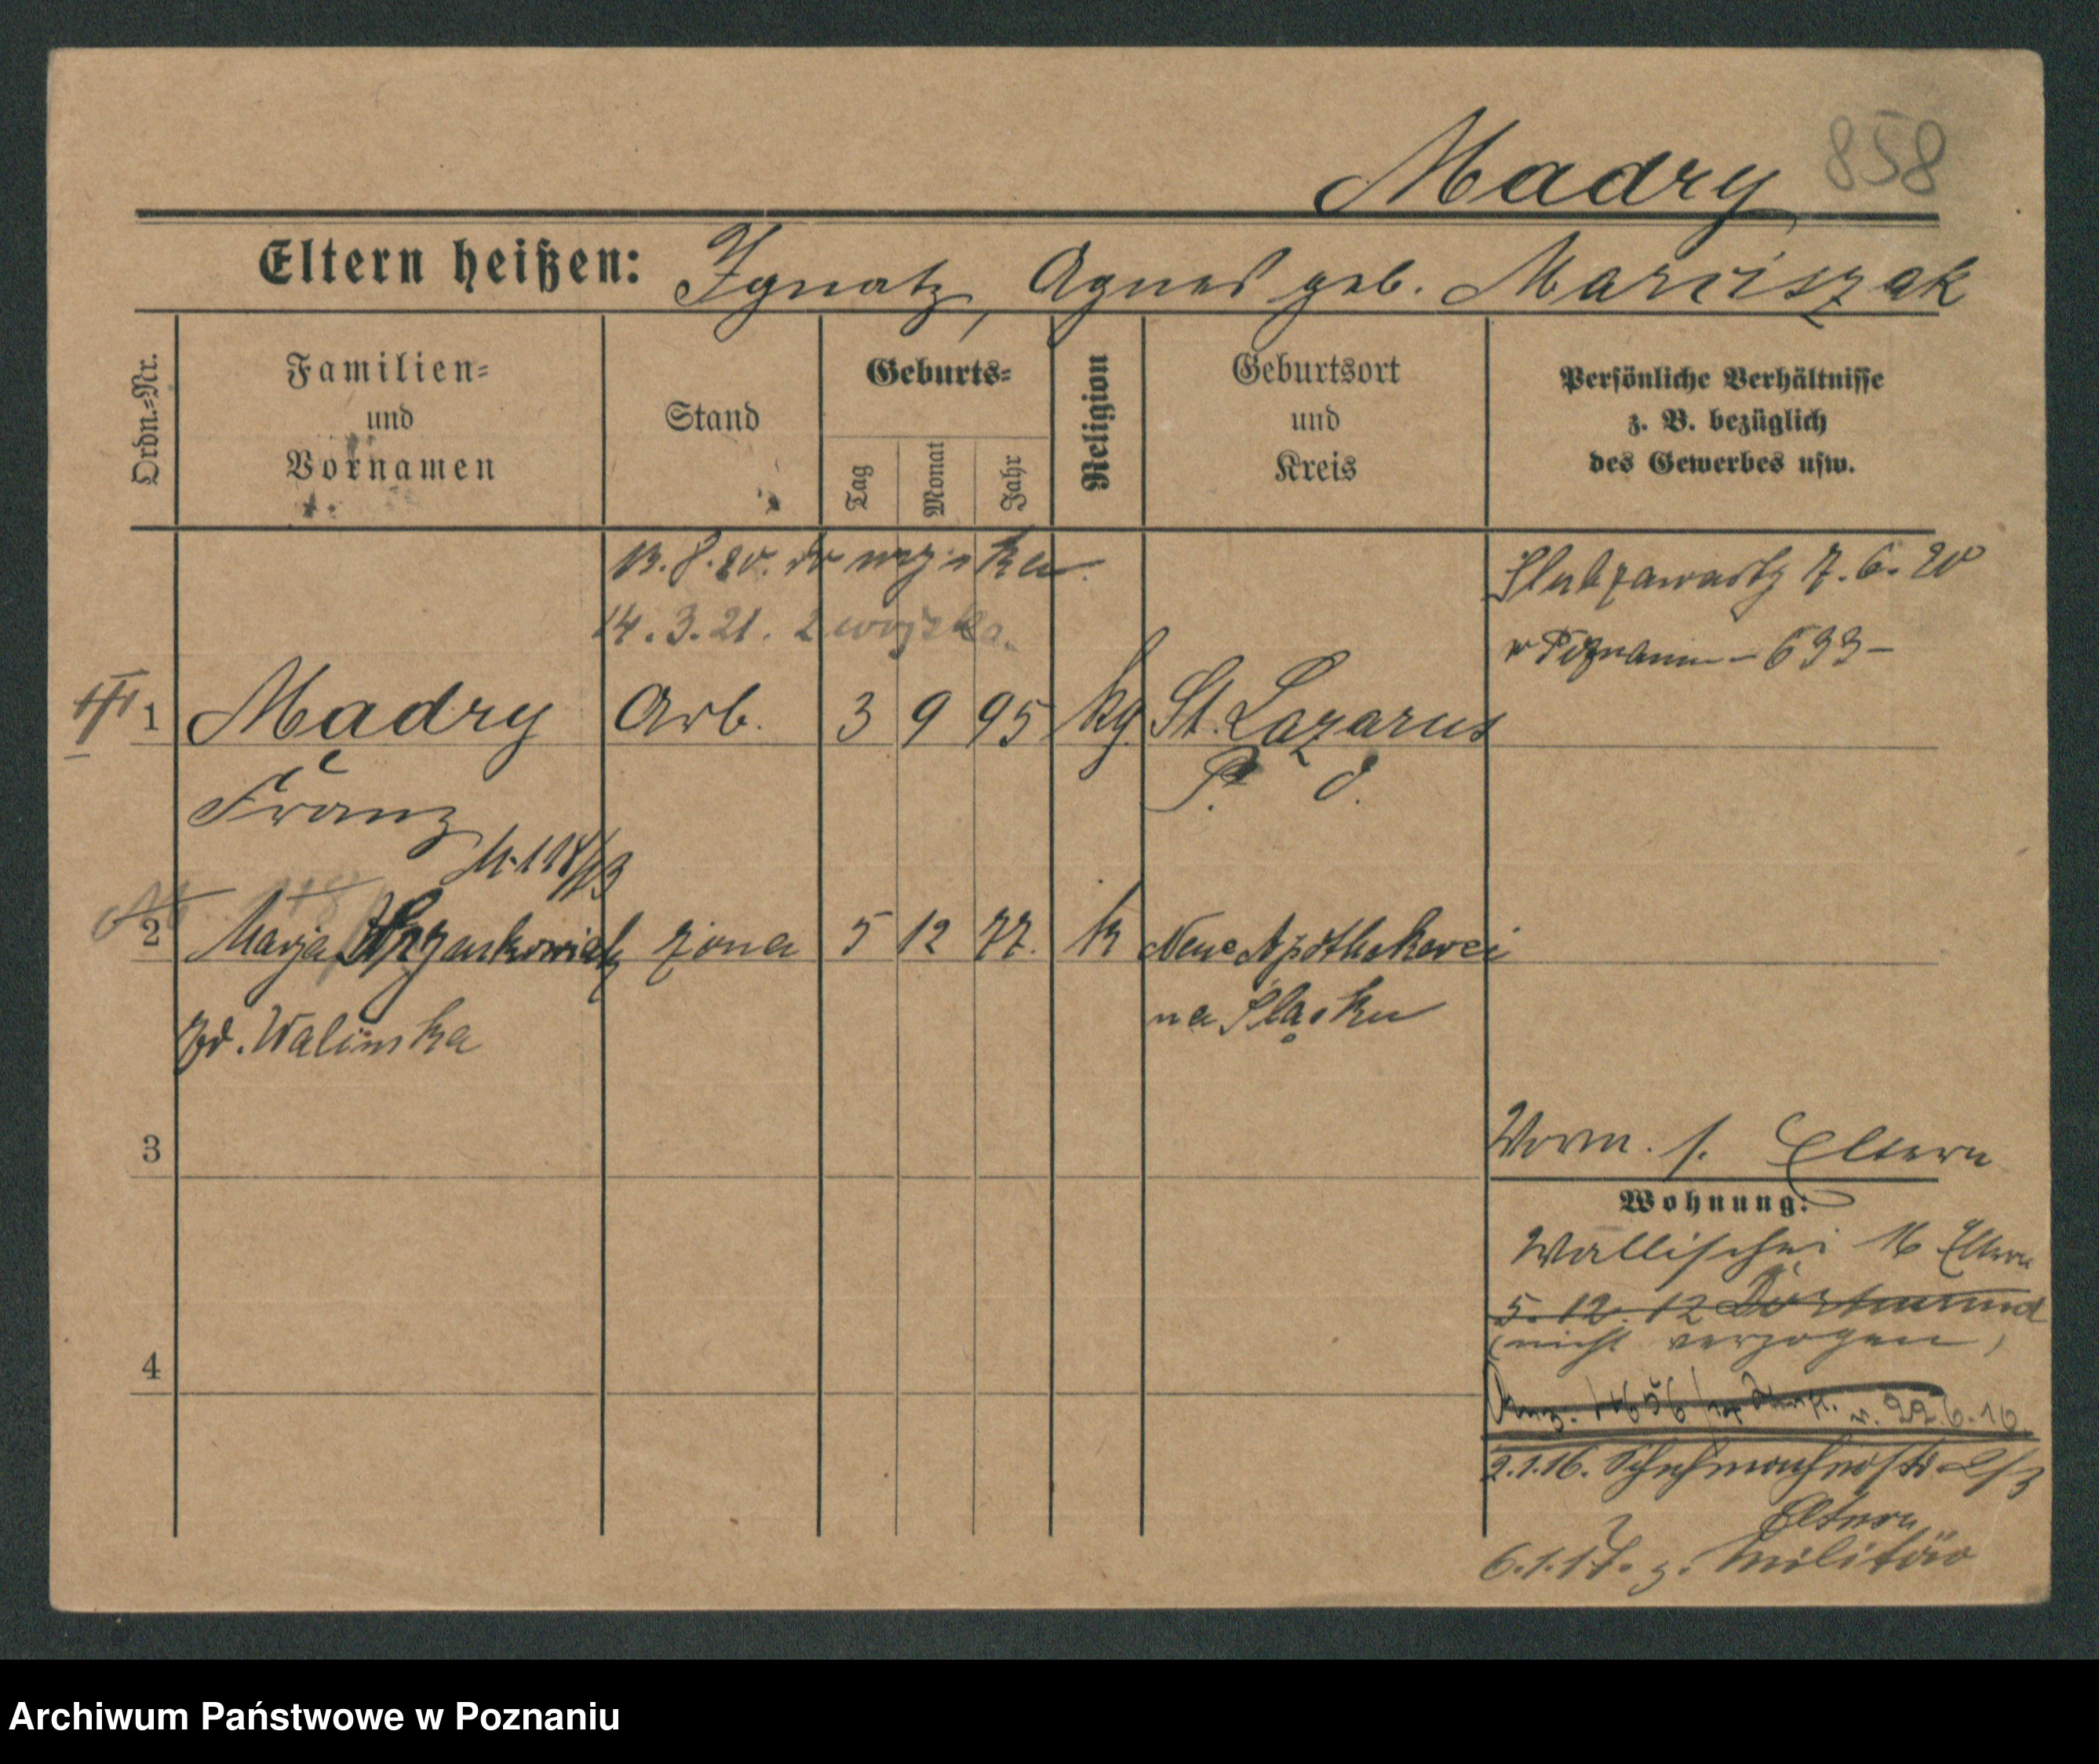 Madry 858
Eltern heißen: Ignatz, Agnes geb. Marciszak
Ordn.=Nr.
Familien=
und
Vornamen
Stand
Geburts=
Tag
Monat
Jahr
Religion
Geburtsort
und
Kreis
Persönliche Verhältnisse
z. B. bezüglich
des Gewerbes usw.
13.8.20. do wojska.
14.3.21. z wojska.
Ślub zawarty 7.6.20
w Poznaniu - 633 -
1 Madry Arb. 3 9 95 kg. St. Lazarus
Franz P. O.
2 Marja żona 5 12 77. k Neue Apothekerei
zd. Walinska na Śląsku
3
Worm. s. Eltern
Wohnung:
Wallischei 16 Eltern
5.12.12 Dortmund
(nicht verzogen)
4
v. 22.6.16.
2.1.16. Schuhmacherstr
Eltern
6.1.17. z. Militär
Archiwum Państwowe w Poznaniu